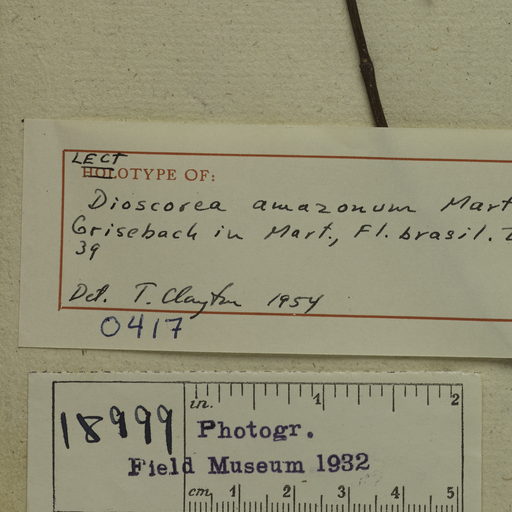 LECT
HOLOTYPE OF:
Dioscorea amazonum Mart
Grisebach in Mart., Fl. brasil.
39
Det. T. Clayton 1954
0417
in. 1 2
18999 Photogr.
Field Museum 1932
cm 1 2 3 4 5